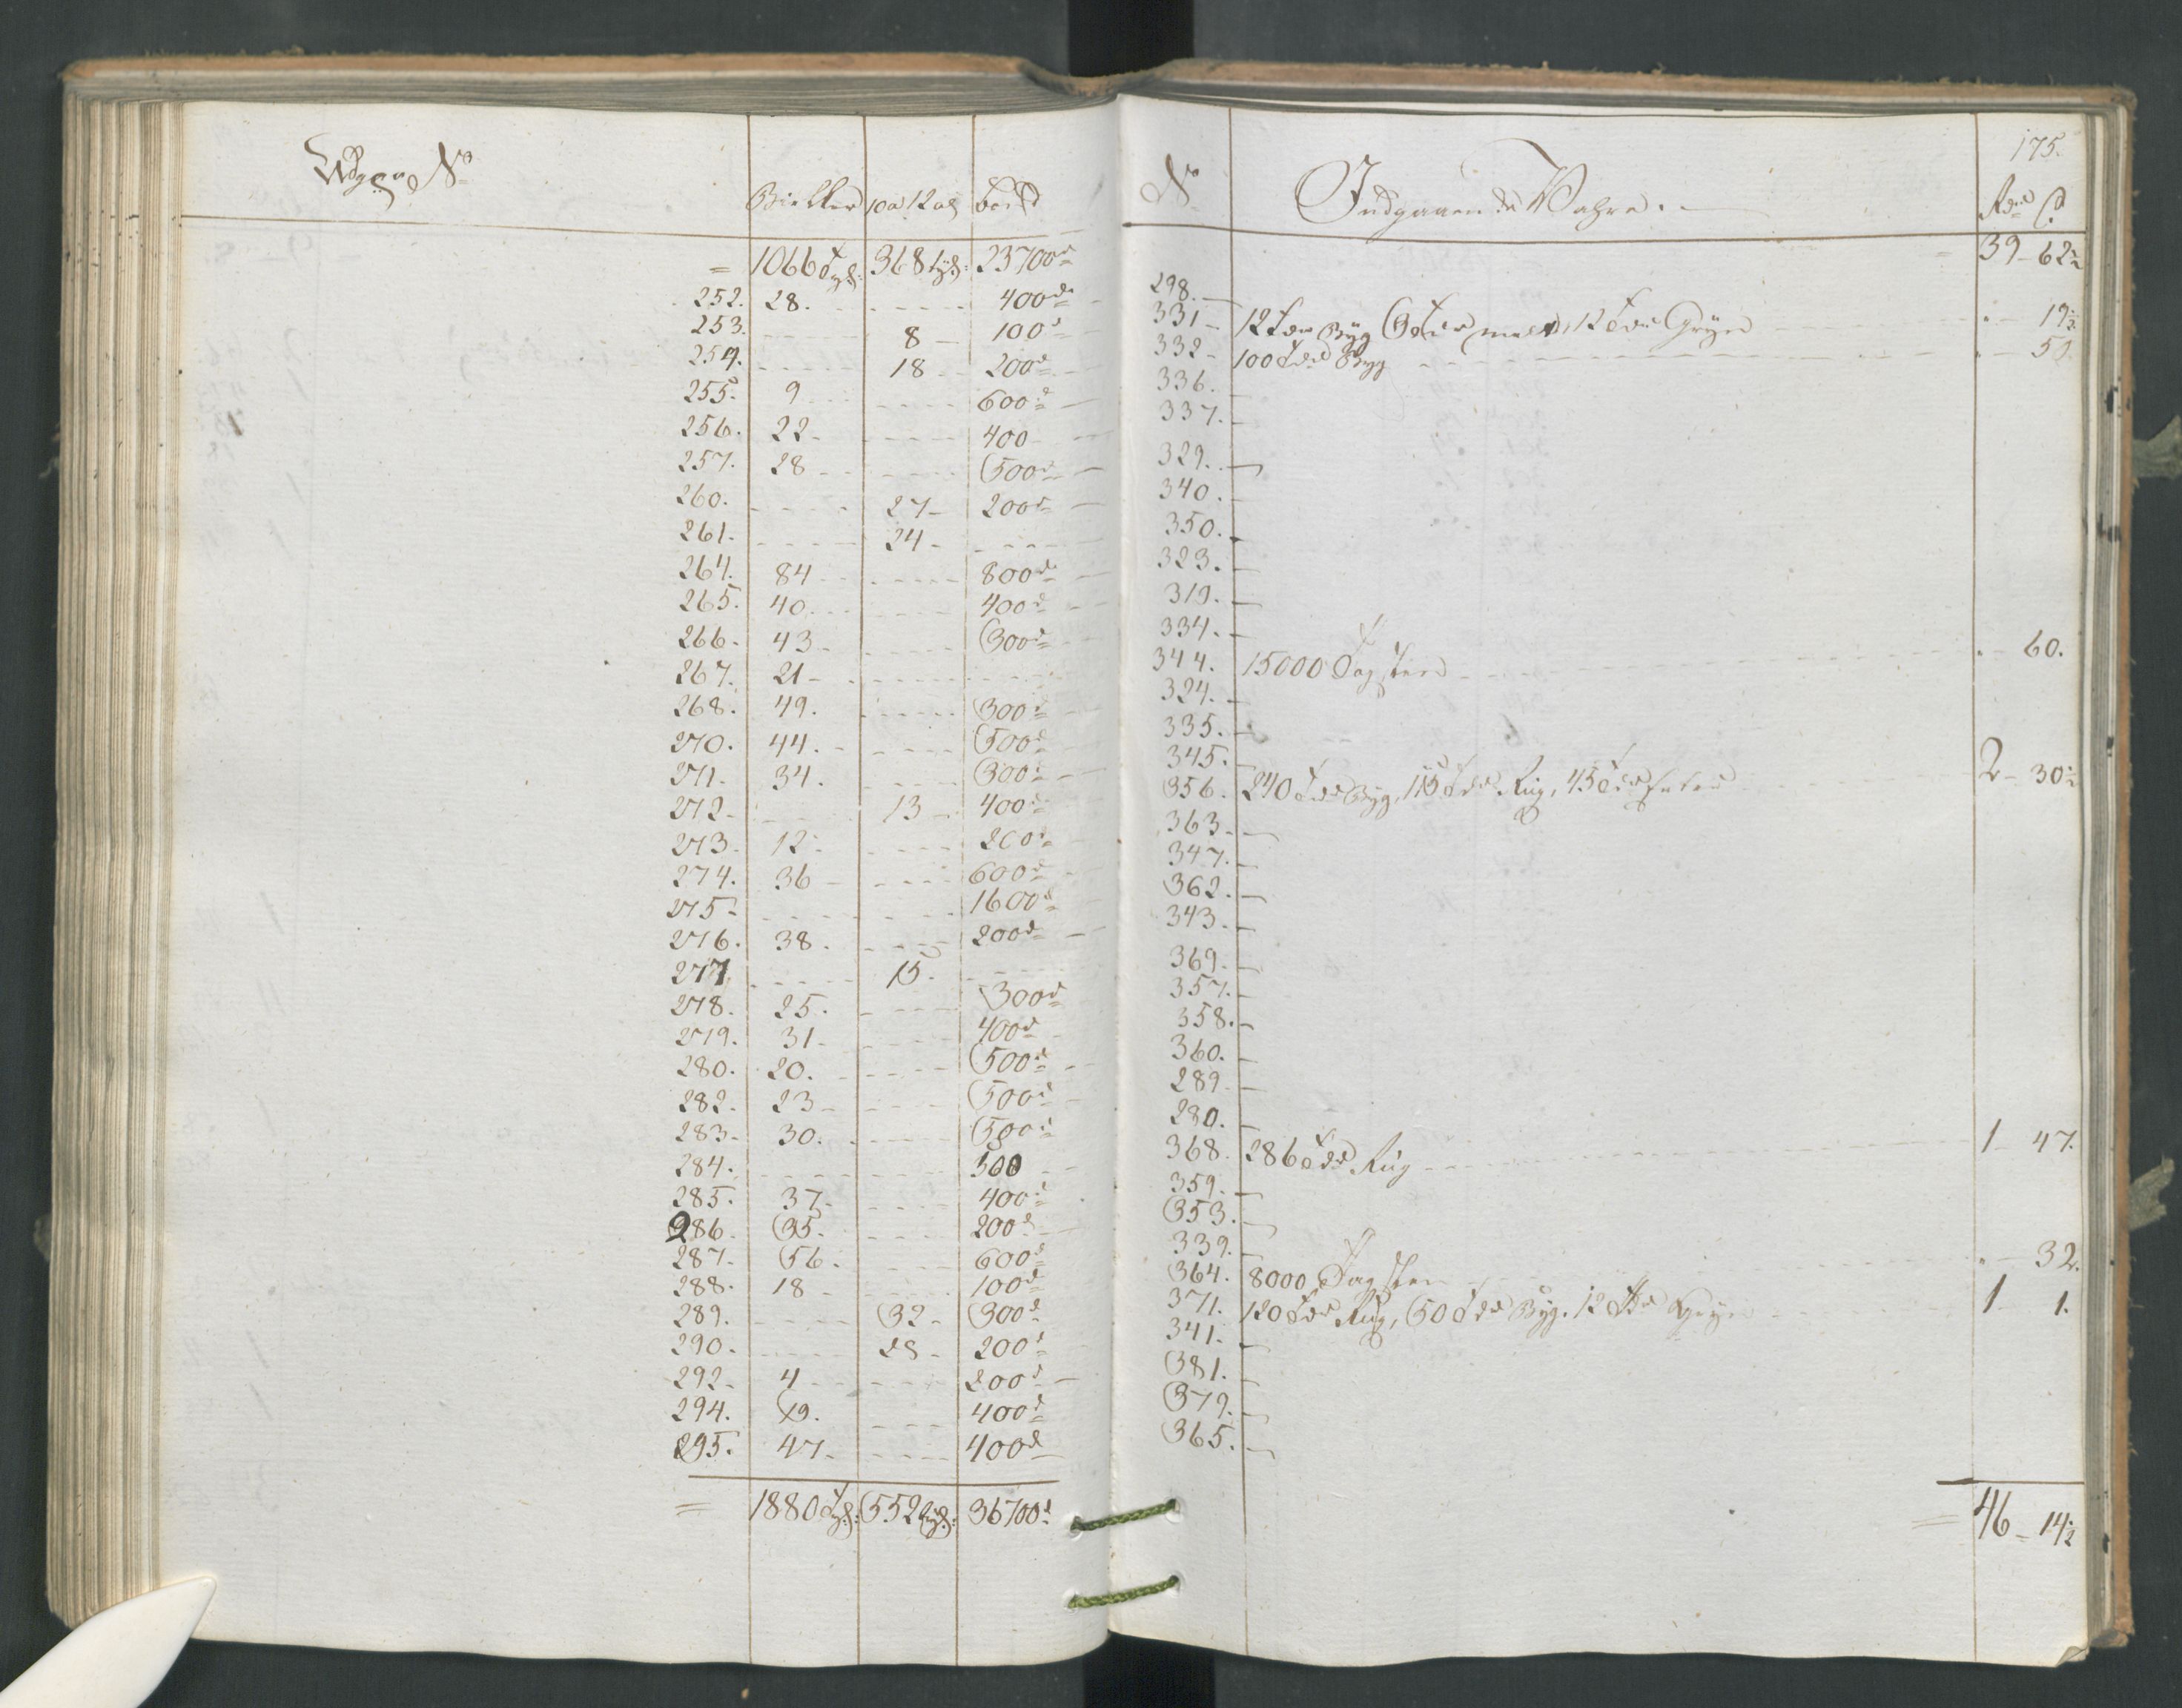 Udgaaende No Bielker 10 a 12 al bord
= 1066 Tylt: 368 tylt: 23700d
252. 28. 400d
253. 8 100d
254. 18 200d
255. 9 600d
256. 22 400
257. 28 500d
260. 27 200d
261. 24
264. 84 800d
265. 40 400d
266. 43 300d
267. 21
268. 49. 300d
270. 44. 500d
271. 34. 300d
272 13 400d
273. 12 200d
274. 36 600d
275 1600d
276. 38. 200d
277 15.
278. 25. 300d
279. 31 400d
280. 20. 500d
282. 23 500d
283. 30. 500d
284. 300
285. 37 400d
286. 35. 200d
287. 56. 600d
288. 18 100d
289. 32 300d
290. 28 200d
292 4 200d
294. 19. 400d
295. 47 400d
= 1880 Tylt: 552 tylt: 36700d
175.
No Indgaaende Vahre.
= 39 - 62½
298.
331 12 Tdr Byg 6 Tdr malt, 12 Tdr Gryn
332 100 Tdr Byg 50
336.
337.
329.
340.
350.
323.
319.
334.
344. 15000 Tagsteen 60.
324.
335.
345.
356. 240 Tdr Byg, 115 Tdr Rug, 45 Tdr 2 - 30½
363
347.
362.
343
369.
357.
358.
360.
289
280.
368. 286 Tdr Rug 1 - 47.
359.
353.
339.
364. 8000 Tagsten 32.
371. 120 Tdr Rug, 50 Tdr Byg. 12 Tdr Gryn 1 1.
341.
381.
379.
365.
= 46 - 14½